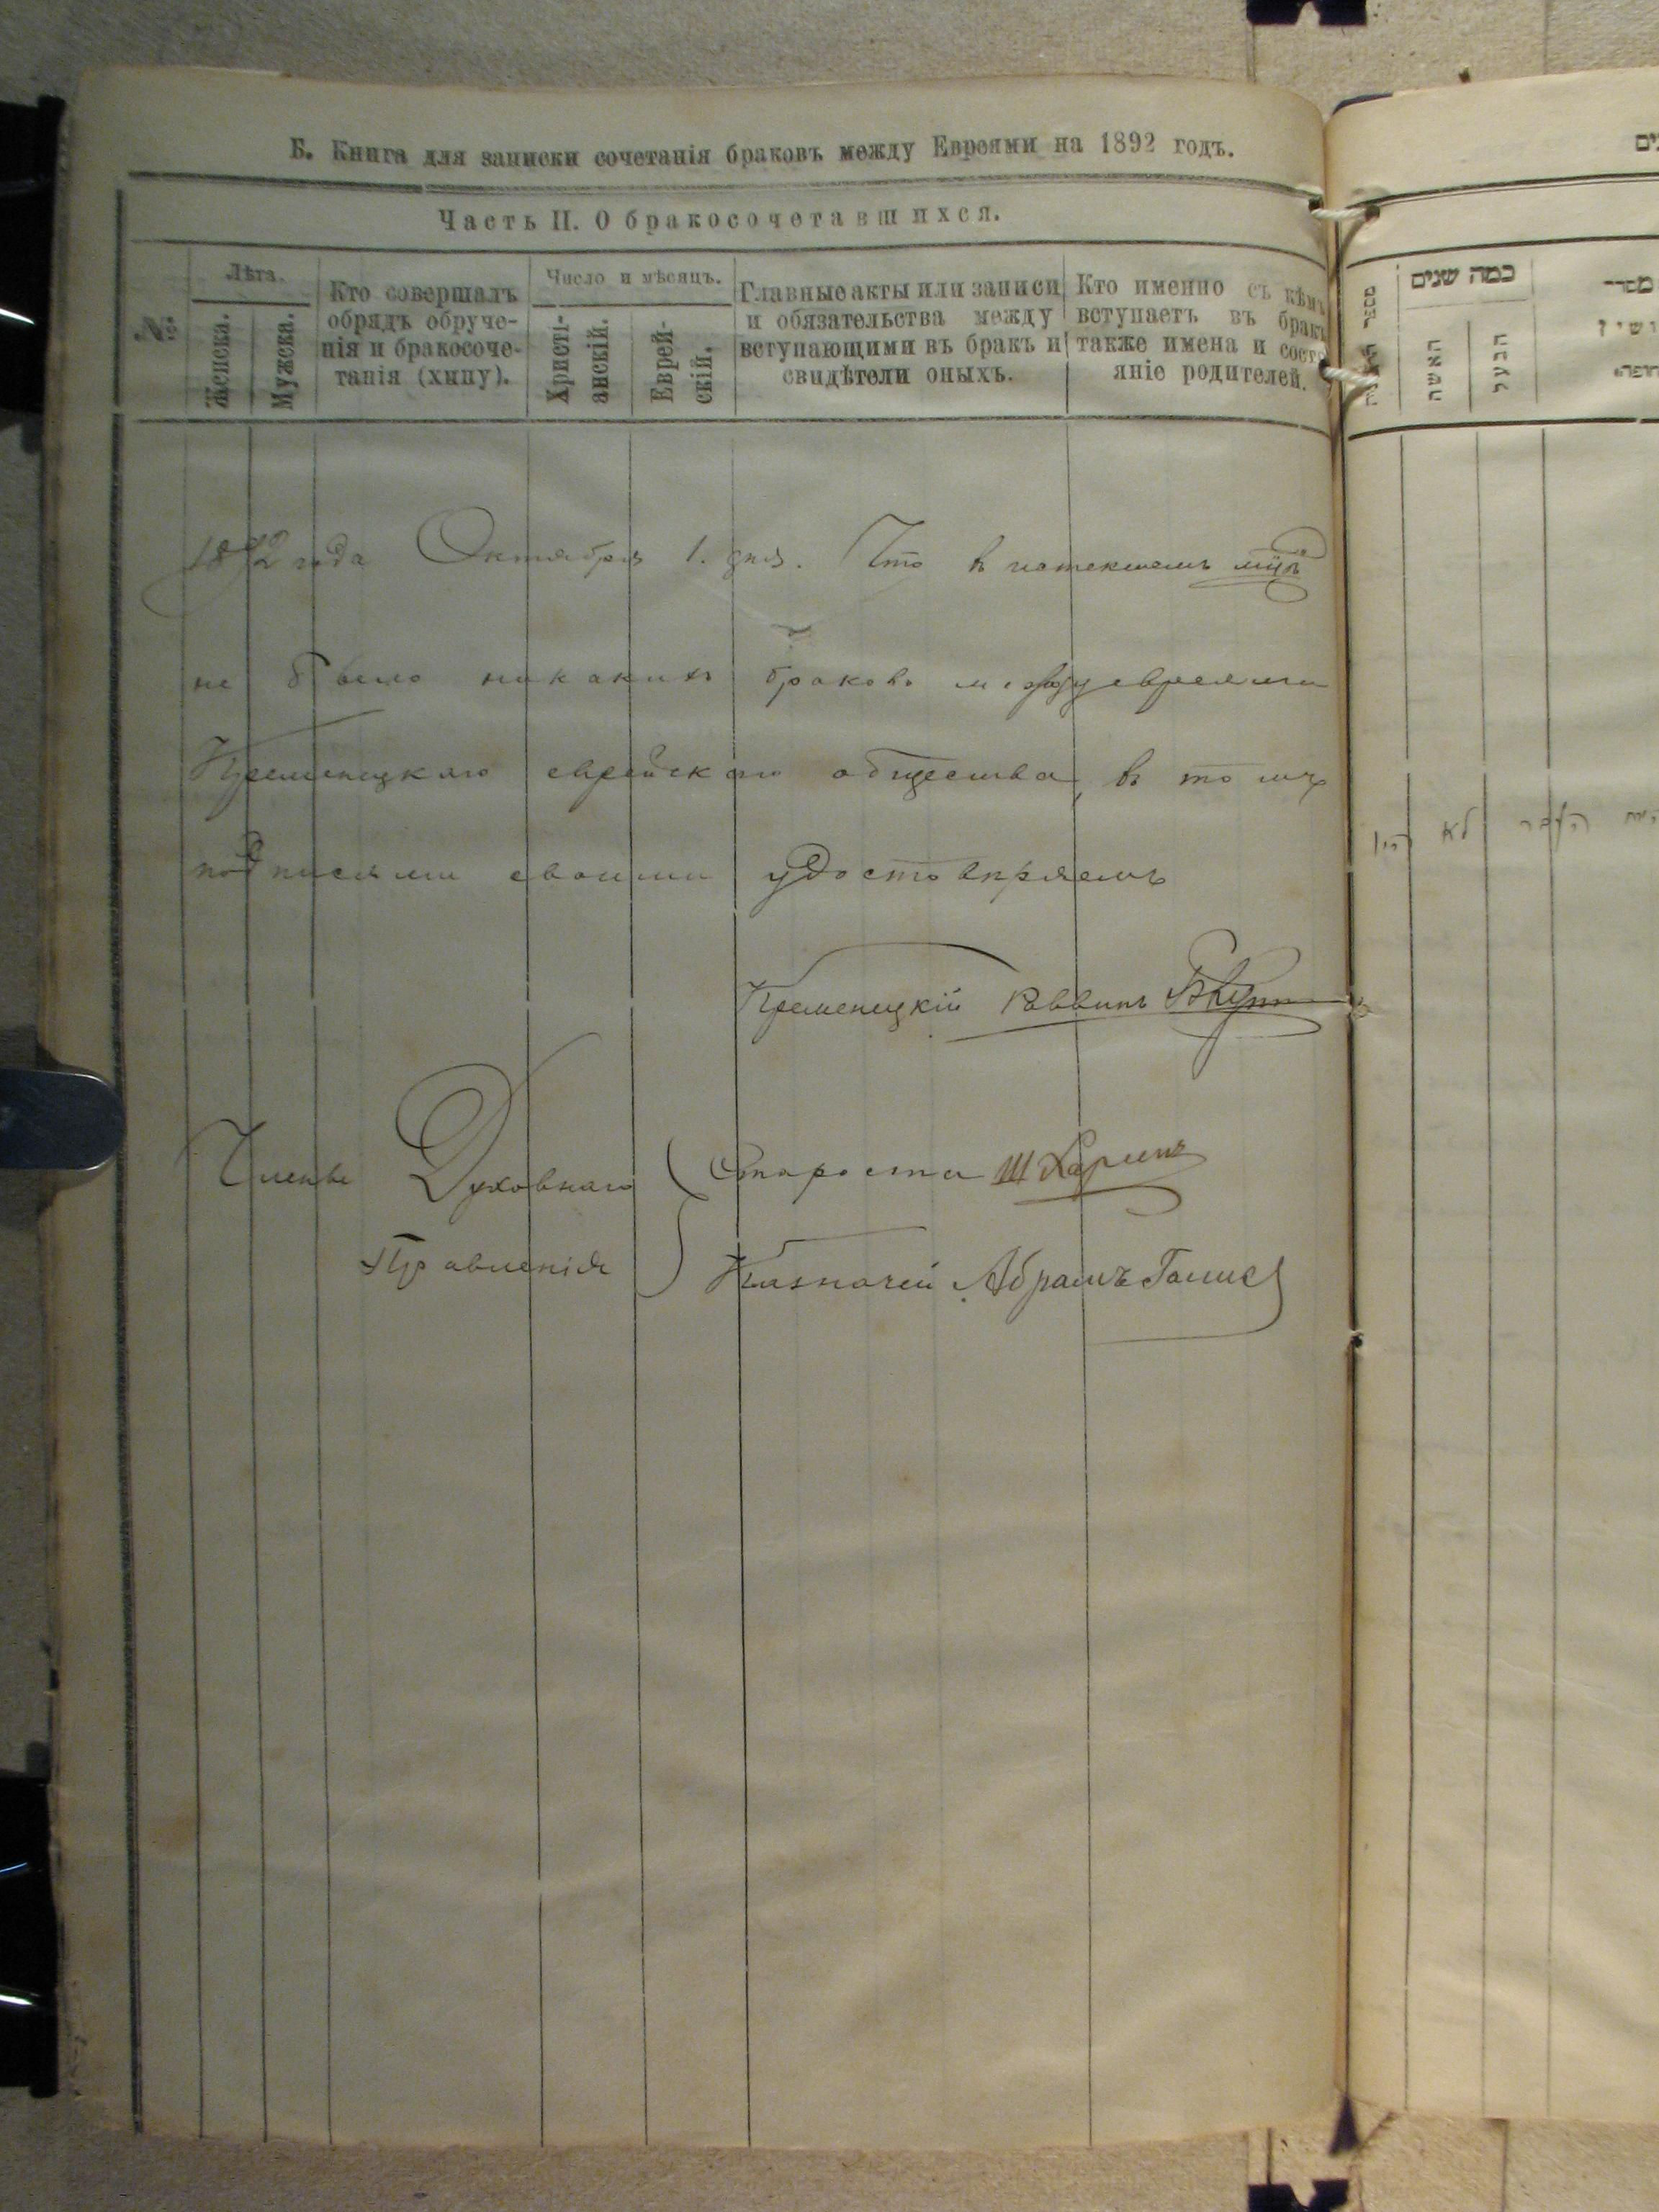 Б. Книга для записки сочетанія браковъ между Евреями на 1892 годъ.
Часть II. О бракосочетавшихся.
№
Лѣта.
Женска.
Мужска.
Кто совершалъ
обрядъ обруче-
нія и бракосоче-
танія (хипу).
Число и мѣсяцъ.
Христі-
анскій.
Еврей-
скій.
Главные акты или записи
и обязательства между
вступающими въ бракъ и
свидѣтели оныхъ.
Кто именно съ кѣмъ
вступаетъ въ бракъ
также имена и состо
яніе родителей.
1892 года Октября 1. дня. Что в истекшемъ
не было никакихъ браковъ между евреями
Кременецкаго еврейскаго общества, въ томъ
подписями своими удостовѣряемъ
Кременецкій Раввинъ
Члены Духовнаго
Правленія
Староста Ш
Казначей Абрамъ
כמה שנים
האשה
הבעל
לא